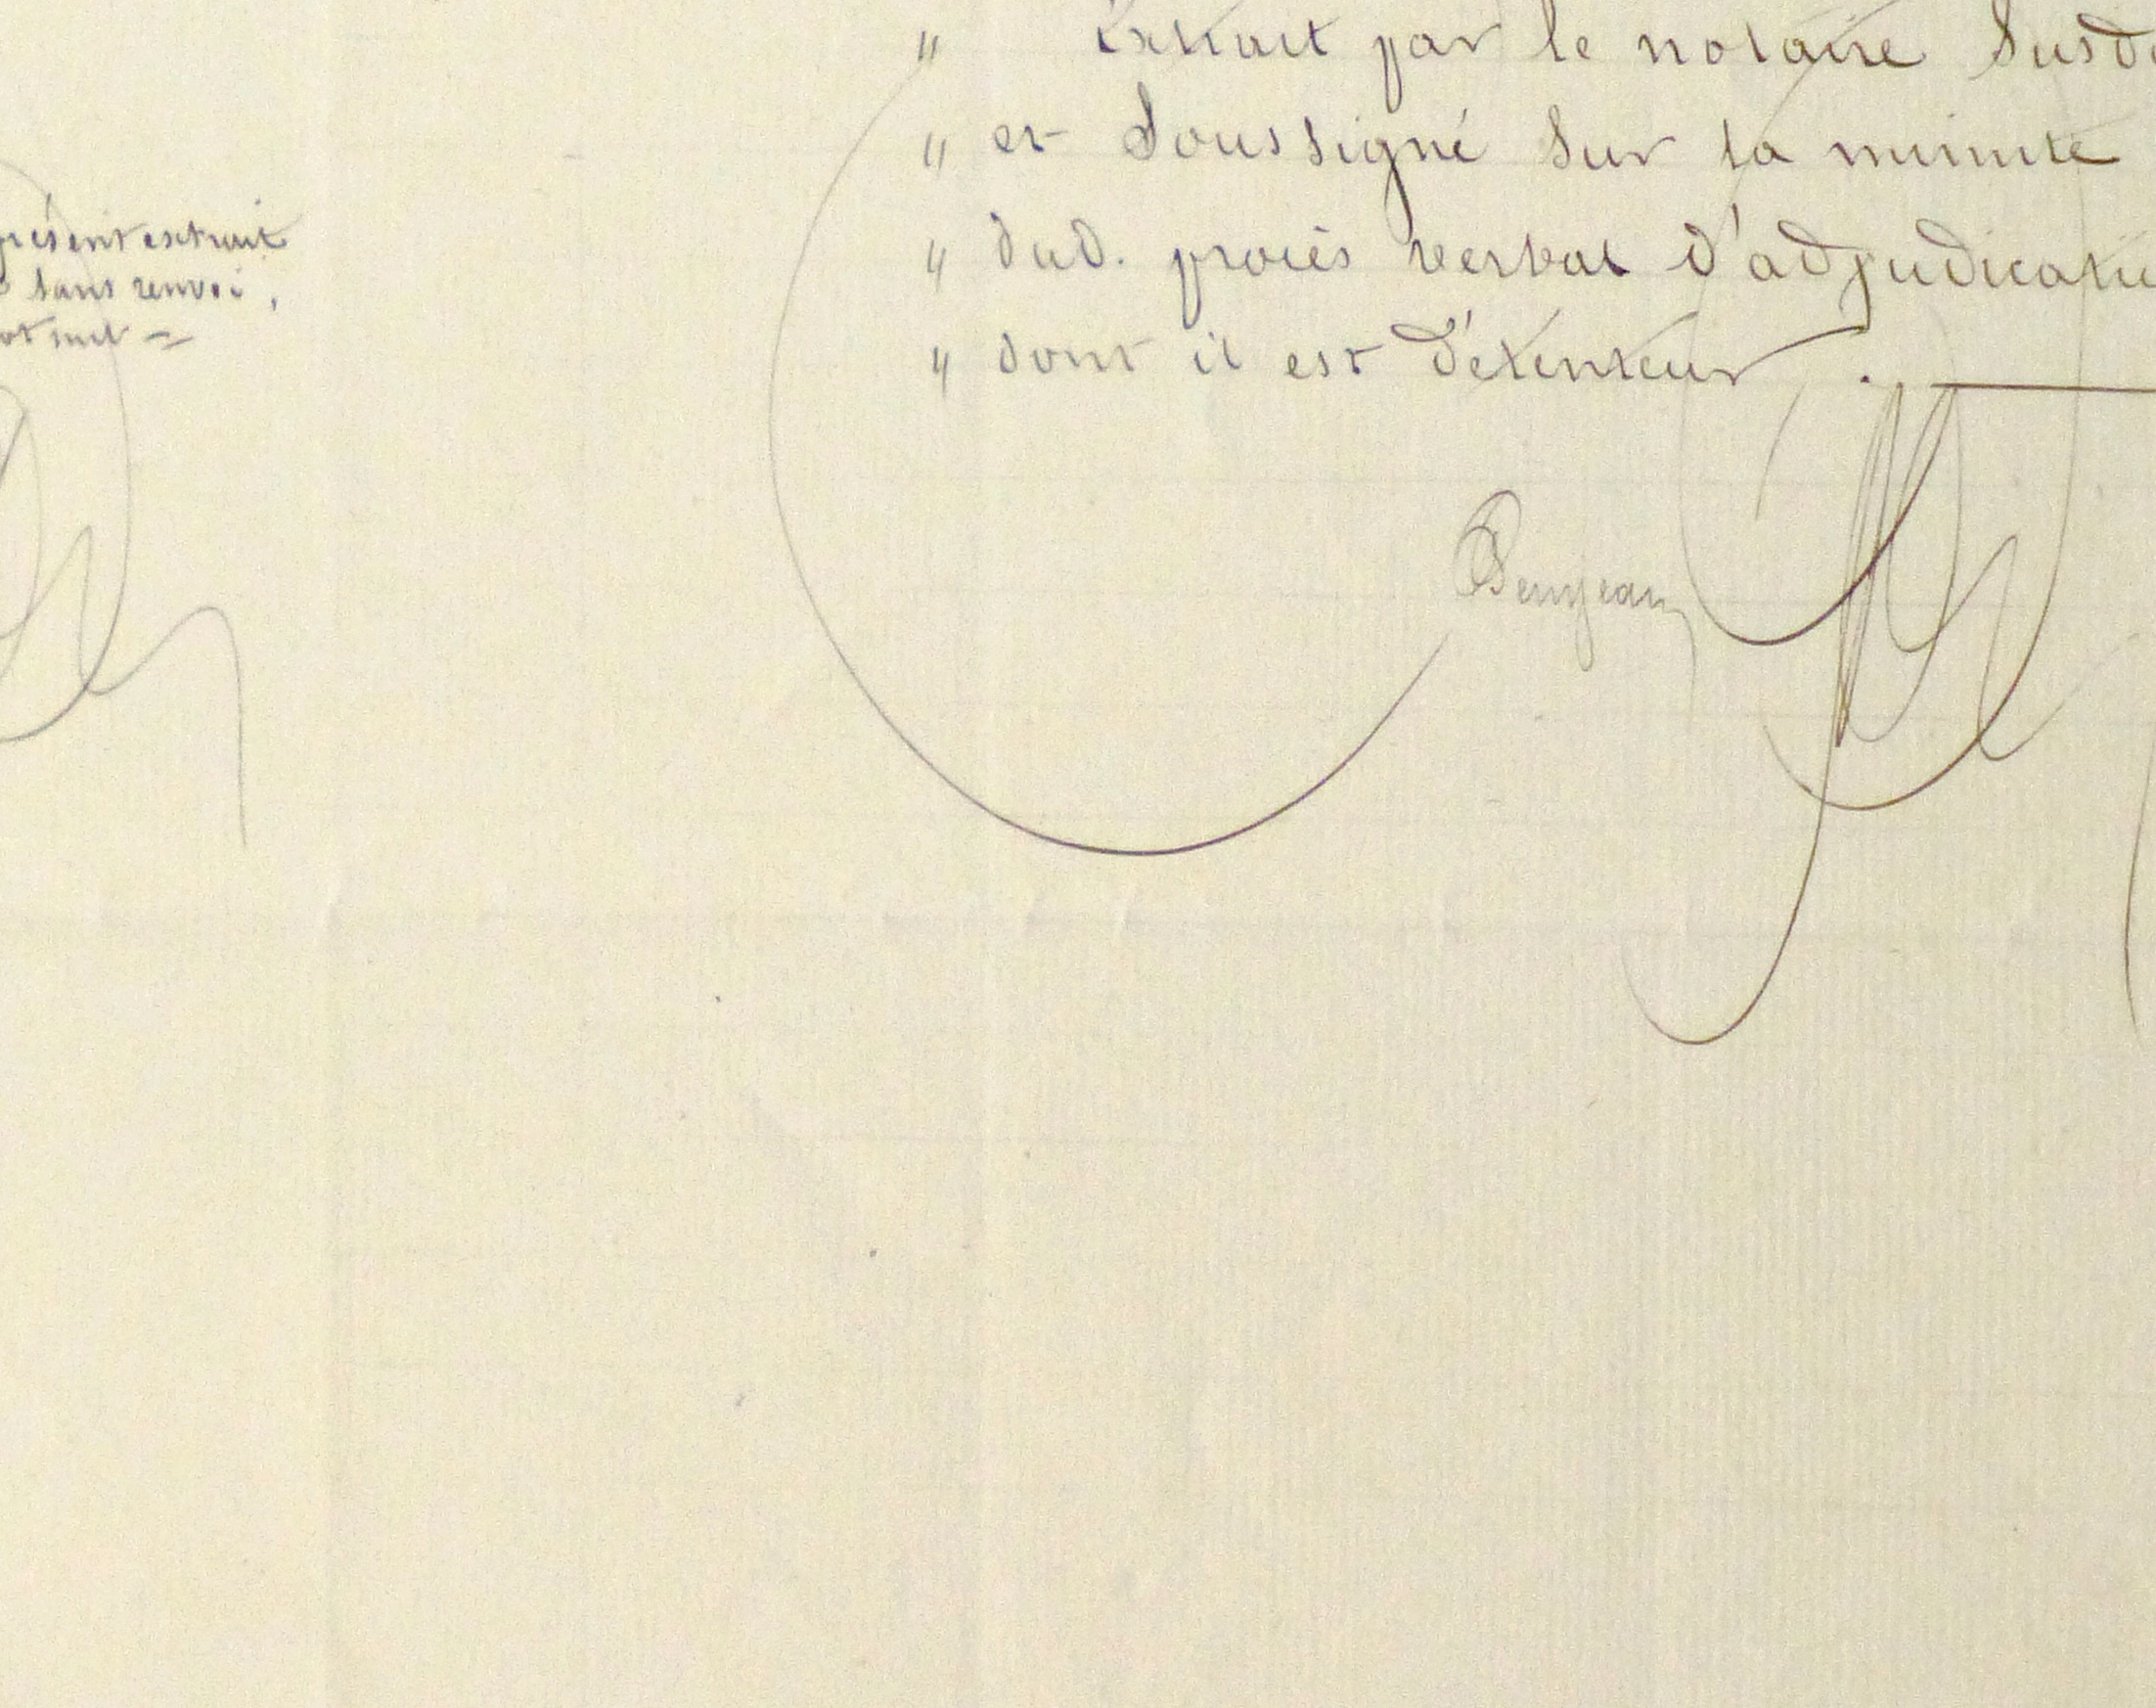 présent extrait
sans renvoi,
mot nul =
" Extrait par le notaire susd
" et Soussigné sur la minute
" dud. procès verbal d'adjudicatio
" dont il est détenteur.